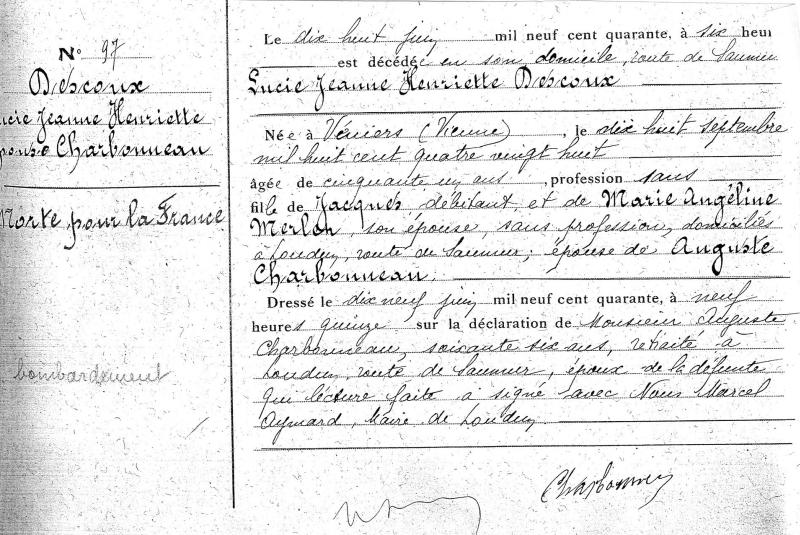 N° 97
Descoux
ucie Jeanne Henriette
pouse Charbonneau
Morte pour la France
bombardement
Le dix huit juin mil neuf cent quarante, à six heur
est décédée en son domicile, route de Saumur
Lucie Jeanne Henriette Descoux
Née à Véniers (Vienne), le dix huit septembre
mil huit cent quatre vingt huit
âgée de cinquante un ans, profession sans
fille de Jacques, débitant, et de Marie Angéline
Merlon, son épouse, sans profession, domiciliés
à Loudun, route de Saumur; épouse de Auguste
Charbonneau.
Dressé le dix neuf juin mil neuf cent quarante, à neuf
heures quinze sur la déclaration de Monsieur Auguste
Charbonneau, soixante six ans, retraité à
Loudun, route de Saumur, époux de la défunte
qui lecture faite a signé avec Nous Marcel
Aymard, Maire de Loudun
Charbonneau